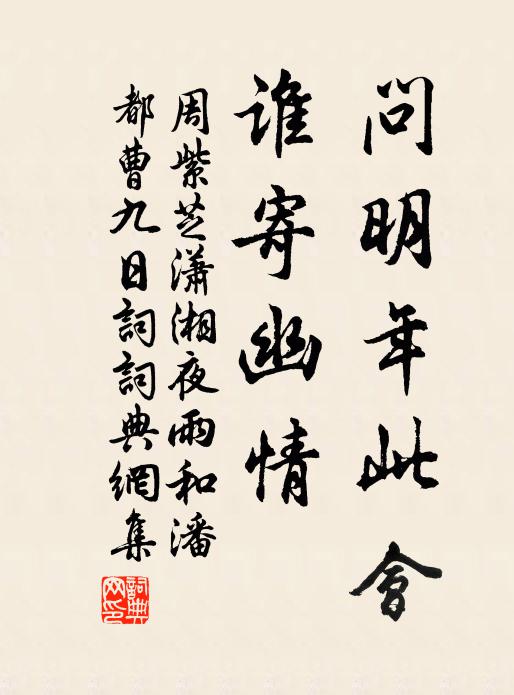 問明年此會
誰寄幽情
周紫芝瀟湘夜雨和潘
都曹九日詞詞典網集
詞典網印